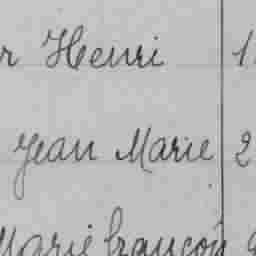 r Henri 1
Jean Marie 2
Marie françois